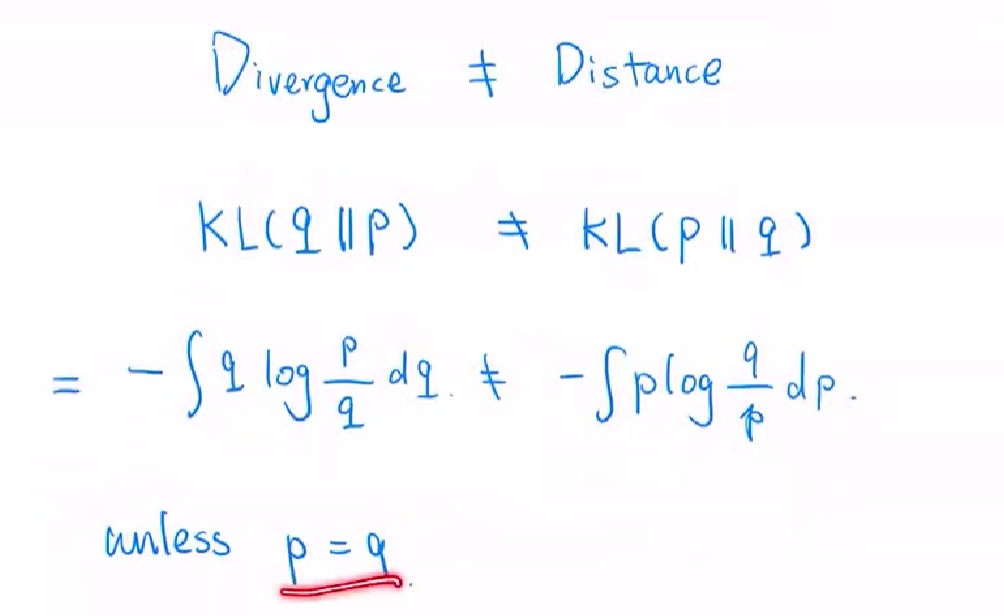 Divergence ≠ Distance
KL(q || p) ≠ KL(p || q)
= - ∫ q log p/q dq. ≠ - ∫ p log q/p dp.
unless p = q.